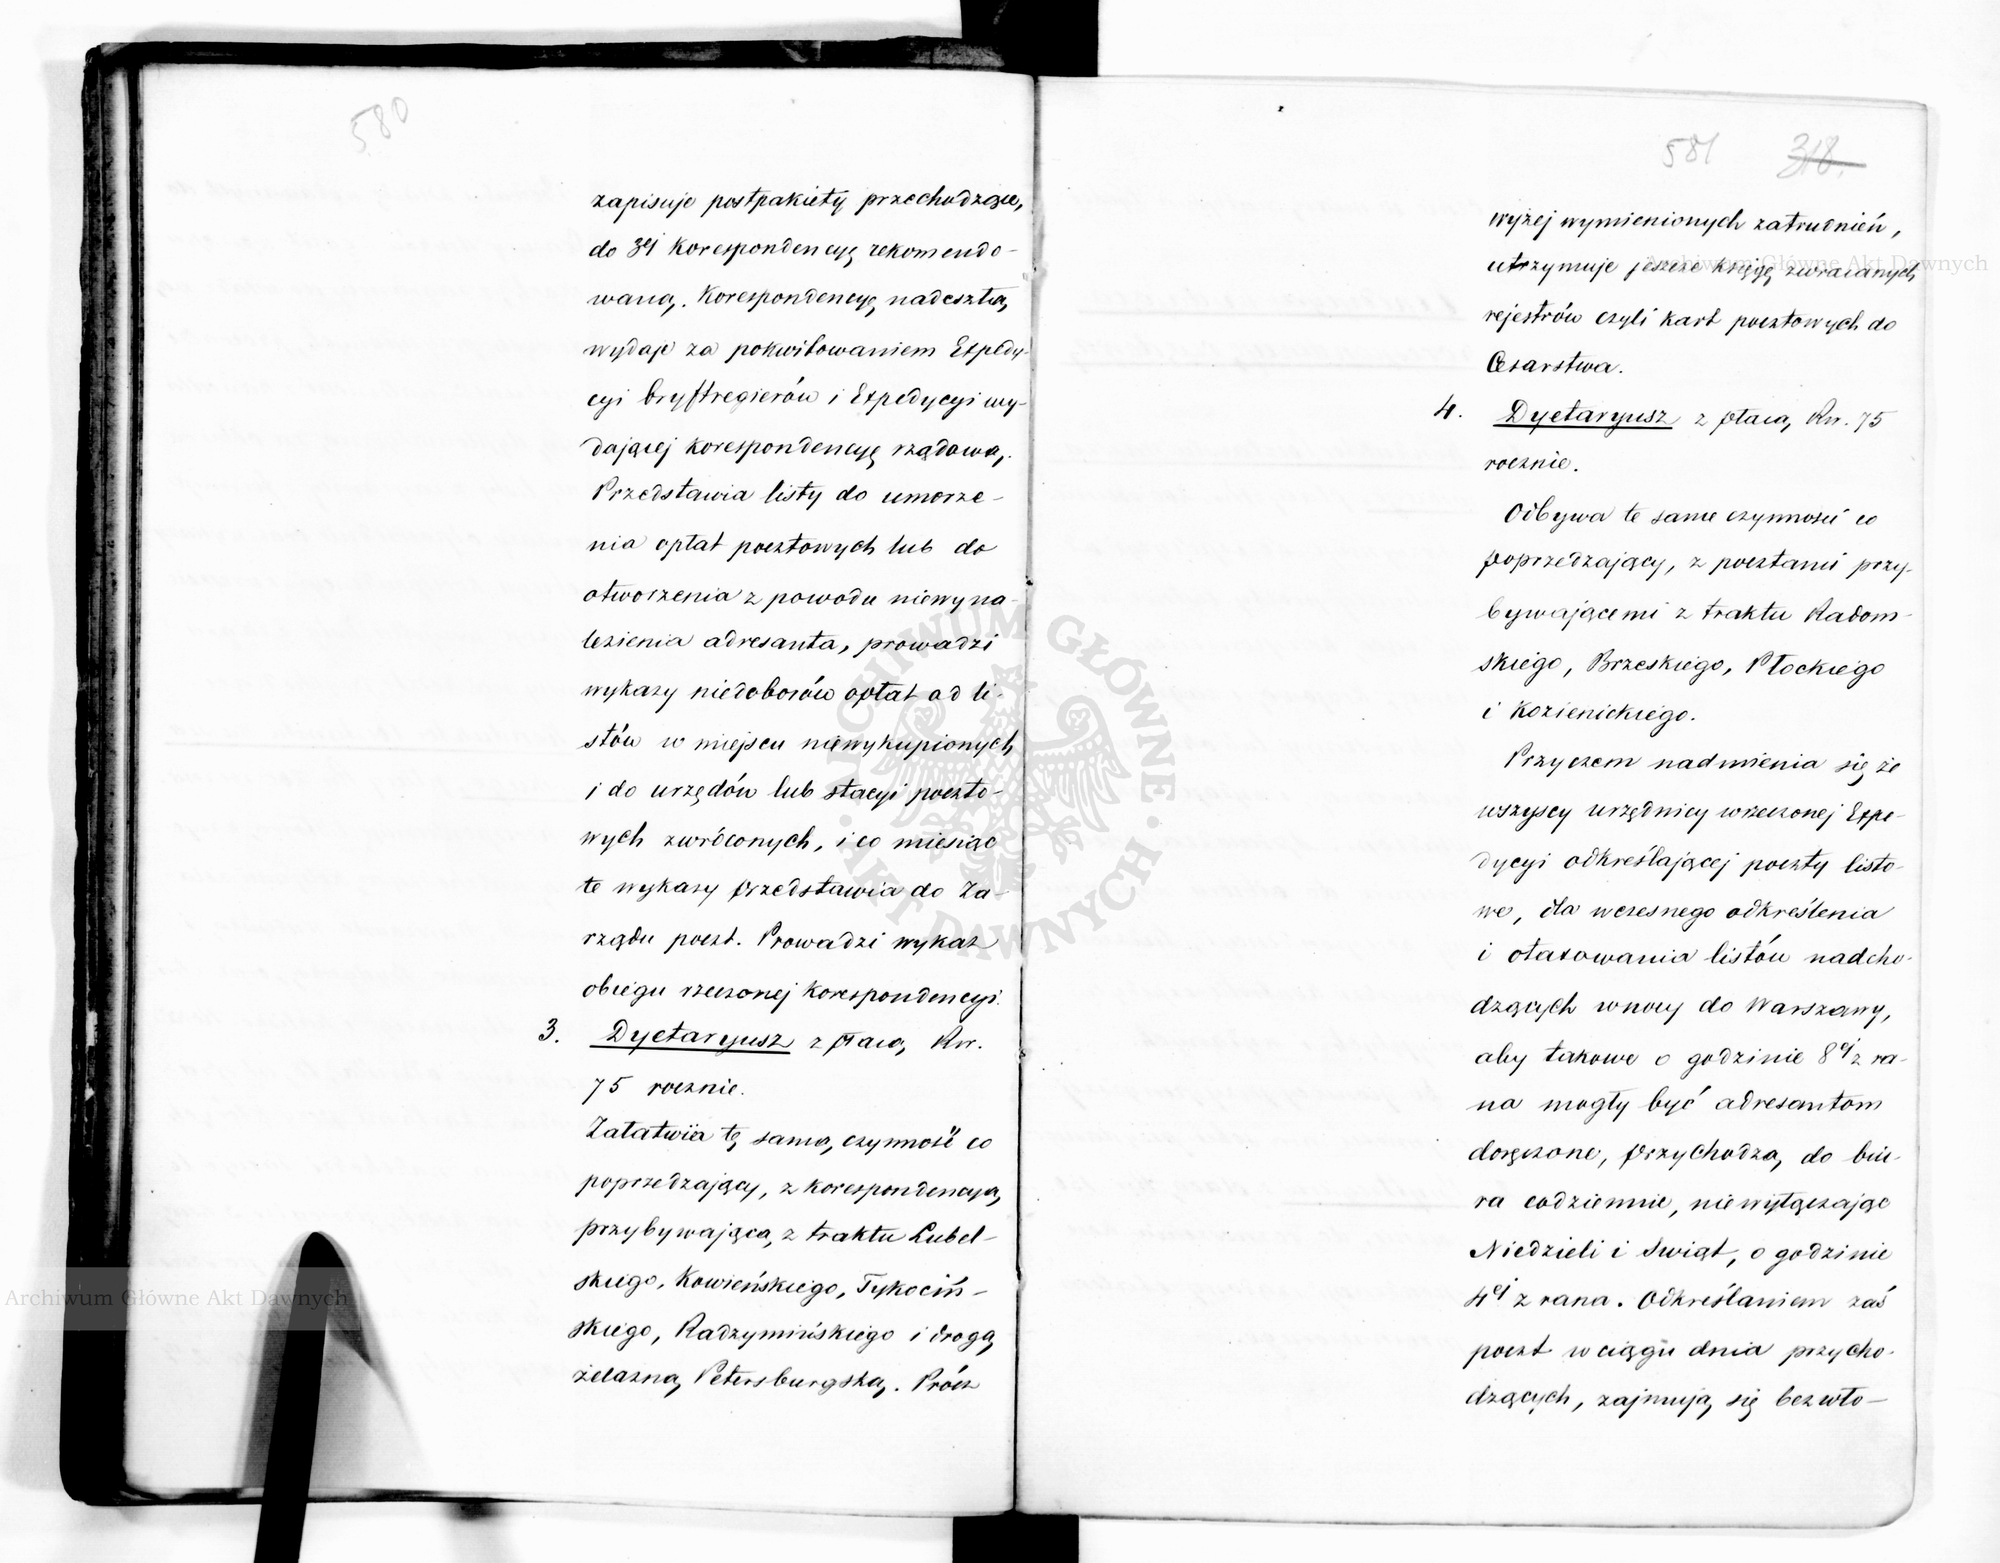 580
zapisuje postpakiety przechodzące,
do 3ej Korespondencyę rekomendo-
waną. Korespondencyę nadeszłą,
wydaje za pokwitowaniem Expedy-
cyi bryftregierów i Expedycyi wy-
dającej korespondencyę rządową.
Przedstawia listy do umorze-
nia opłat pocztowych lub do
otworzenia z powodu niewyna-
lezienia adresanta, prowadzi
wykazy niedoborów opłat od li-
stów w miejscu niewykupionych
i do urzędów lub stacyi poczto-
wych zwróconych, i co miesiąc
te wykazy przedstawia do Za-
rządu poczt. Prowadzi wykaz
obiegu rzeczonej Korespondencyi.
3. Dyetaryusz z płacą Rsr.
75 rocznie.
Załatwia tę samą czynność co
poprzedzający, z korespondencyą
przybywającą z traktu Lubel-
skiego, Kowieńskiego, Tykociń-
skiego, Radzymińskiego i drogą
żelazną Petersburgską. Prócz
581 318.
wyżej wymienionych zatrudnień,
utrzymuje jeszcze księgę zwracanych
rejestrów czyli kart pocztowych do
Cesarstwa.
4. Dyetaryusz z płacą Rsr. 75
rocznie.
Odbywa te same czynności co
poprzedzający, z pocztami przy-
bywającemi z traktu Radom-
skiego, Brzeskiego, Płockiego
i Kozienickiego.
Przyczem nadmienia się że
wszyscy urzędnicy wrzeczonej Expe-
dycyi odkreślającej poczty listo-
we, dla wczesnego odkreślenia
i otaxowania listów nadcho-
dzących wnocy do Warszawy,
aby takowe o godzinie 8ej z ra-
na mogły być adresantom
doręczone, przychodzą do biu-
ra codziennie, niewyłączając
Niedzieli i Swiąt, o godzinie
4ej z rana. Odkreślaniem zaś
poczt w ciągu dnia przycho-
dzących, zajmują się bezwło-
Archiwum Główne Akt Dawnych
Archiwum Główne Akt Dawnych
ARCHIWUM GŁÓWNE
AKT DAWNYCH